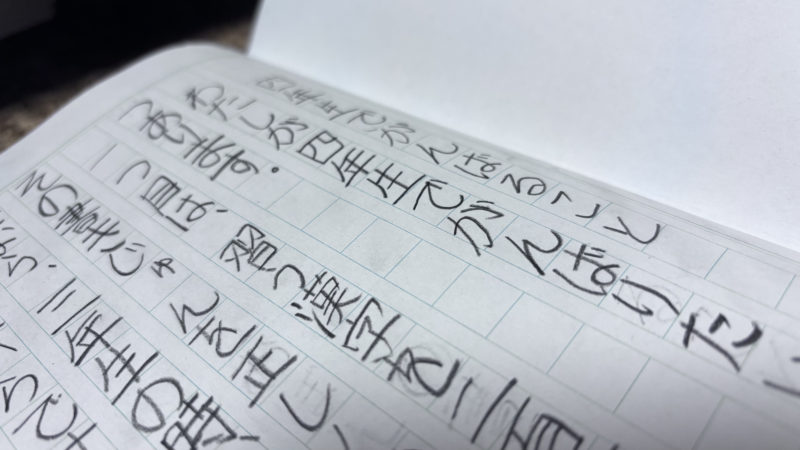 四年生でがんばること
わたしが四年生でがんばりたい
つあります。
一つ目は、習う漢字を二百
その書きじゅんを正し
ら、三年生の時
らです